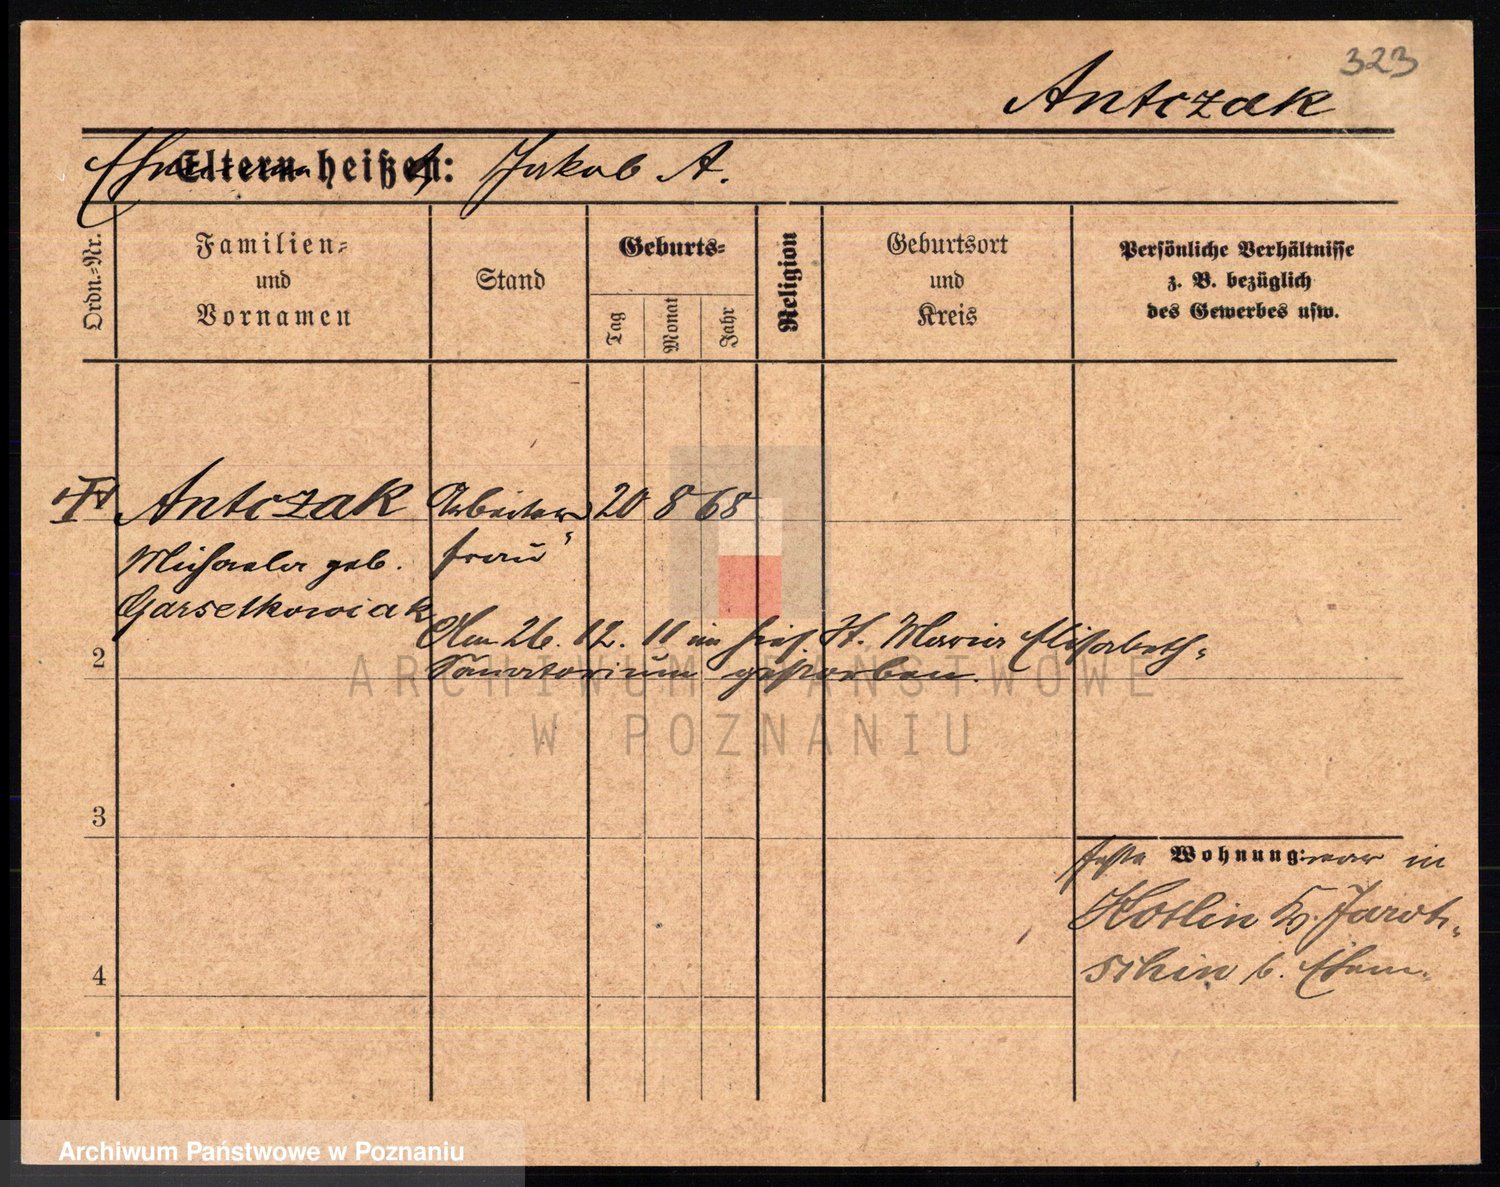 323
Antczak
Eltern heißen: Jakob A.
Ordn.-Nr.
Familien-
und
Vornamen
Stand
Geburts-
Tag
Monat
Jahr
Religion
Geburtsort
und
Kreis
Persönliche Verhältnisse
z. B. bezüglich
des Gewerbes usw.
Antczak Arbeiter 20 8 68
Michaela geb. frau
Garsetkowiak
Am 26. 12. 11 im hies. St. Maria Elisabeth-
2
Sanatorium gestorben.
ARCHIWUM PAŃSTWOWE
W POZNANIU
3
feste Wohnung: war in
Kotlin Kr. Jarot-
schin b. Ehem.
4
Archiwum Państwowe w Poznaniu